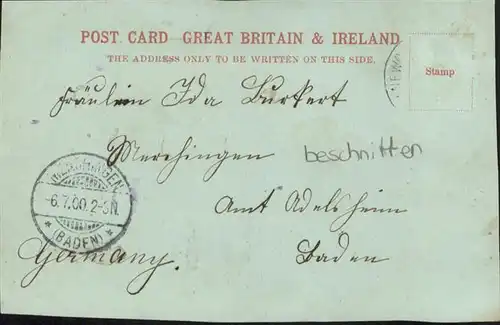 POST CARD GREAT BRITAIN & IRELAND
THE ADDRESS ONLY TO BE WRITTEN ON THIS SIDE.
Stamp
Fräulein Ida Burkert
Merchingen
beschnitten
MERCHINGEN
6.7.00.2-3N.
(BADEN)
Amt Adelsheim
Germany.
Baden